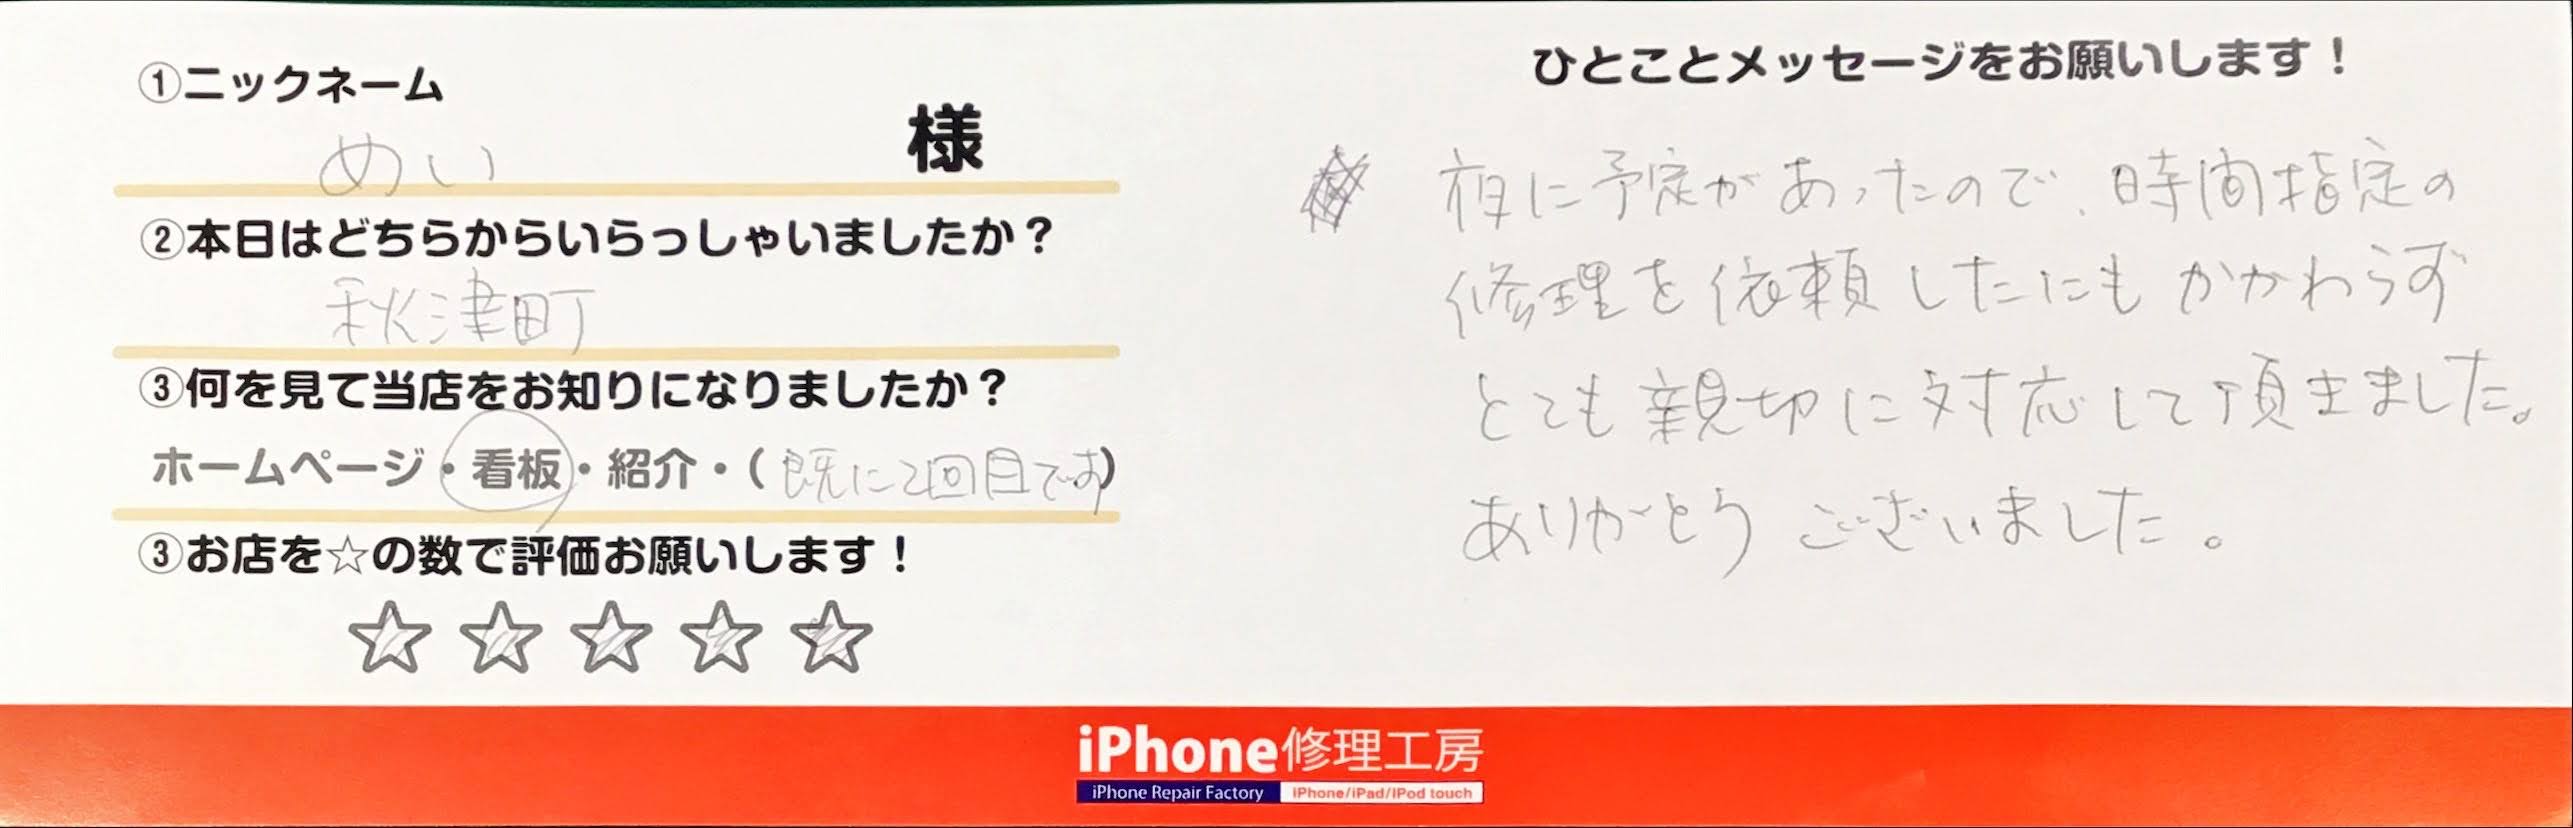 ①ニックネーム
めい 様
②本日はどちらからいらっしゃいましたか？
秋津町
③何を見て当店をお知りになりましたか？
ホームページ・看板・紹介・(既に2回目です)
③お店を☆の数で評価お願いします！
☆☆☆☆☆
ひとことメッセージをお願いします！
夜に予定があったので、時間指定の
修理を依頼したにもかかわらず
とても親切に対応して頂きました。
ありがとうございました。
iPhone修理工房
iPhone Repair Factory iPhone/iPad/iPod touch